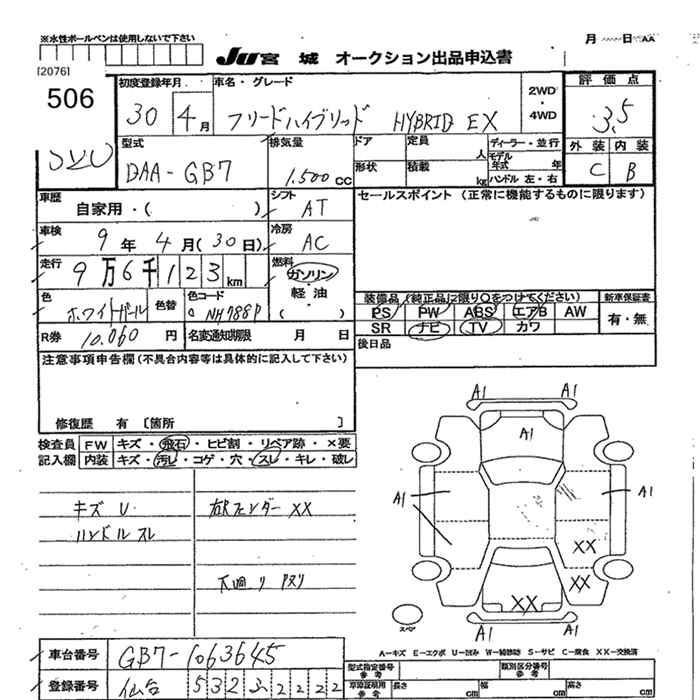 ※水性ボールペンは使用しないで下さい
月 日 AA
JU 宮城 オークション出品申込書
[2076]
506
初度登録年月 車名・グレード 2WD・4WD 評価点
30 4月 フリードハイブリッド HYBRID EX 3.5
型式 排気量 ドア 定員 人 ディーラー・並行 外装 内装
DAA-GB7 1.500cc 形状 積載 kg モデル年式 年 C B
ハンドル 左・右
車歴 自家用・( ) シフト AT セールスポイント (正常に機能するものに限ります)
車検 9年 4月(30日) 冷房 AC
走行 9万6千123km 燃料 ガソリン・軽油・( )
色 ホワイトパール 色替 色コード NH788P
装備品 (純正品に限り○をつけてください) 新車保証書
PS PW ABS エアB AW 有・無
SR ナビ TV カワ
R券 10.060円 名変通知期限 月 日 後日品
注意事項申告欄(不具合内容等は具体的に記入して下さい)
修復歴 有 〔箇所 〕
検査員 FW キズ・飛石・ヒビ割・リペア跡・×要
記入欄 内装 キズ・汚レ・コゲ・穴・スレ・キレ・破レ
キズ U 右Rフェンダー XX
ハンドルスレ
下廻り
A1 A1
A1
A1 A1
XX
XX
XX
A1 A1
スペア
A-キズ E-エクボ U-凹み W-補修跡 S-サビ C-腐食 XX-交換済
車台番号 GB7-1063645
型式指定番号 参考 類別区分番号 参考
登録番号 仙台 532 ふ 2222
車庫証明用 参考 長さ 幅 高さ
cm cm cm